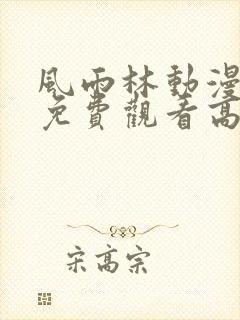 風雨林動漫
免費觀看高
宋高宗